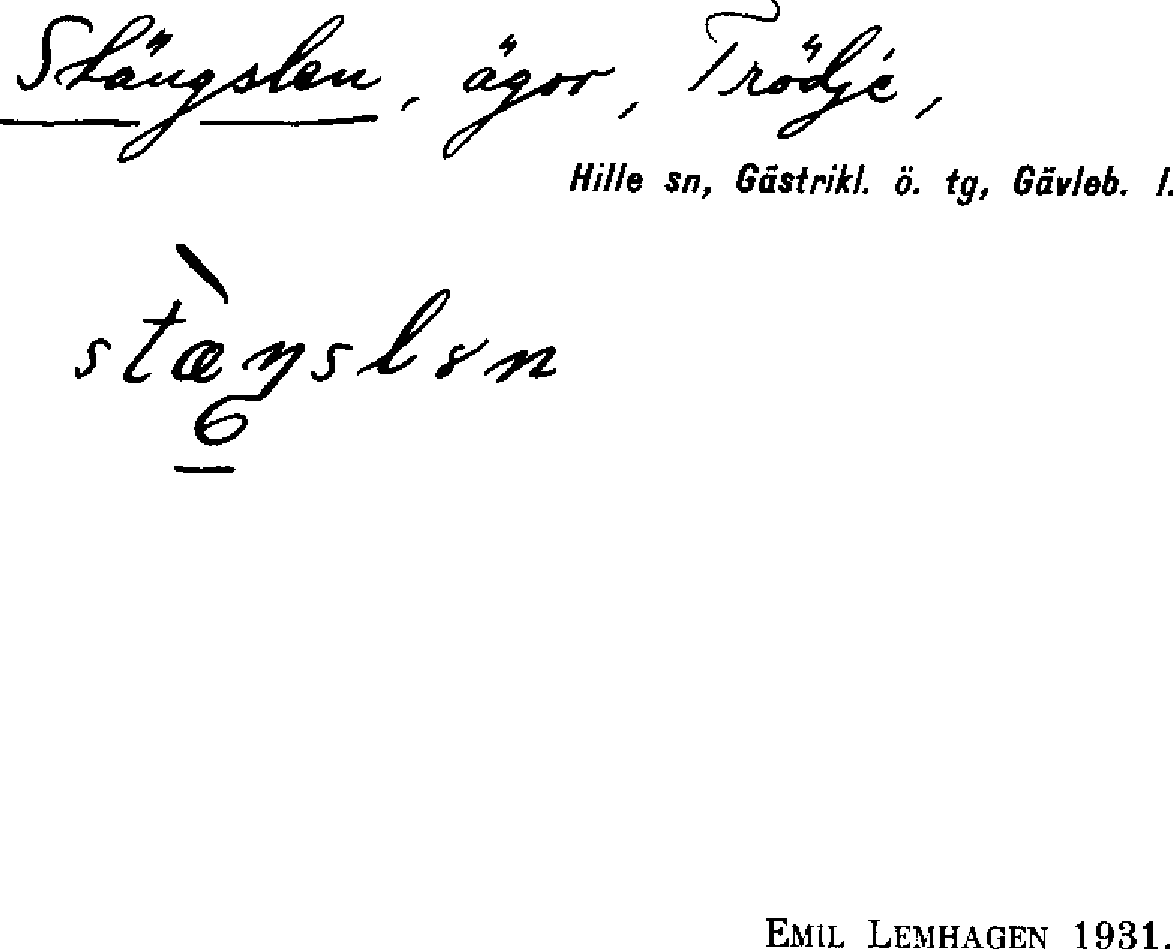 Stängslen, ägor, Trödje,
Hille sn, Gästrikl. ö. tg, Gävleb. l.
stæ̀ŋslən
6
EMIL LEMHAGEN 1931.